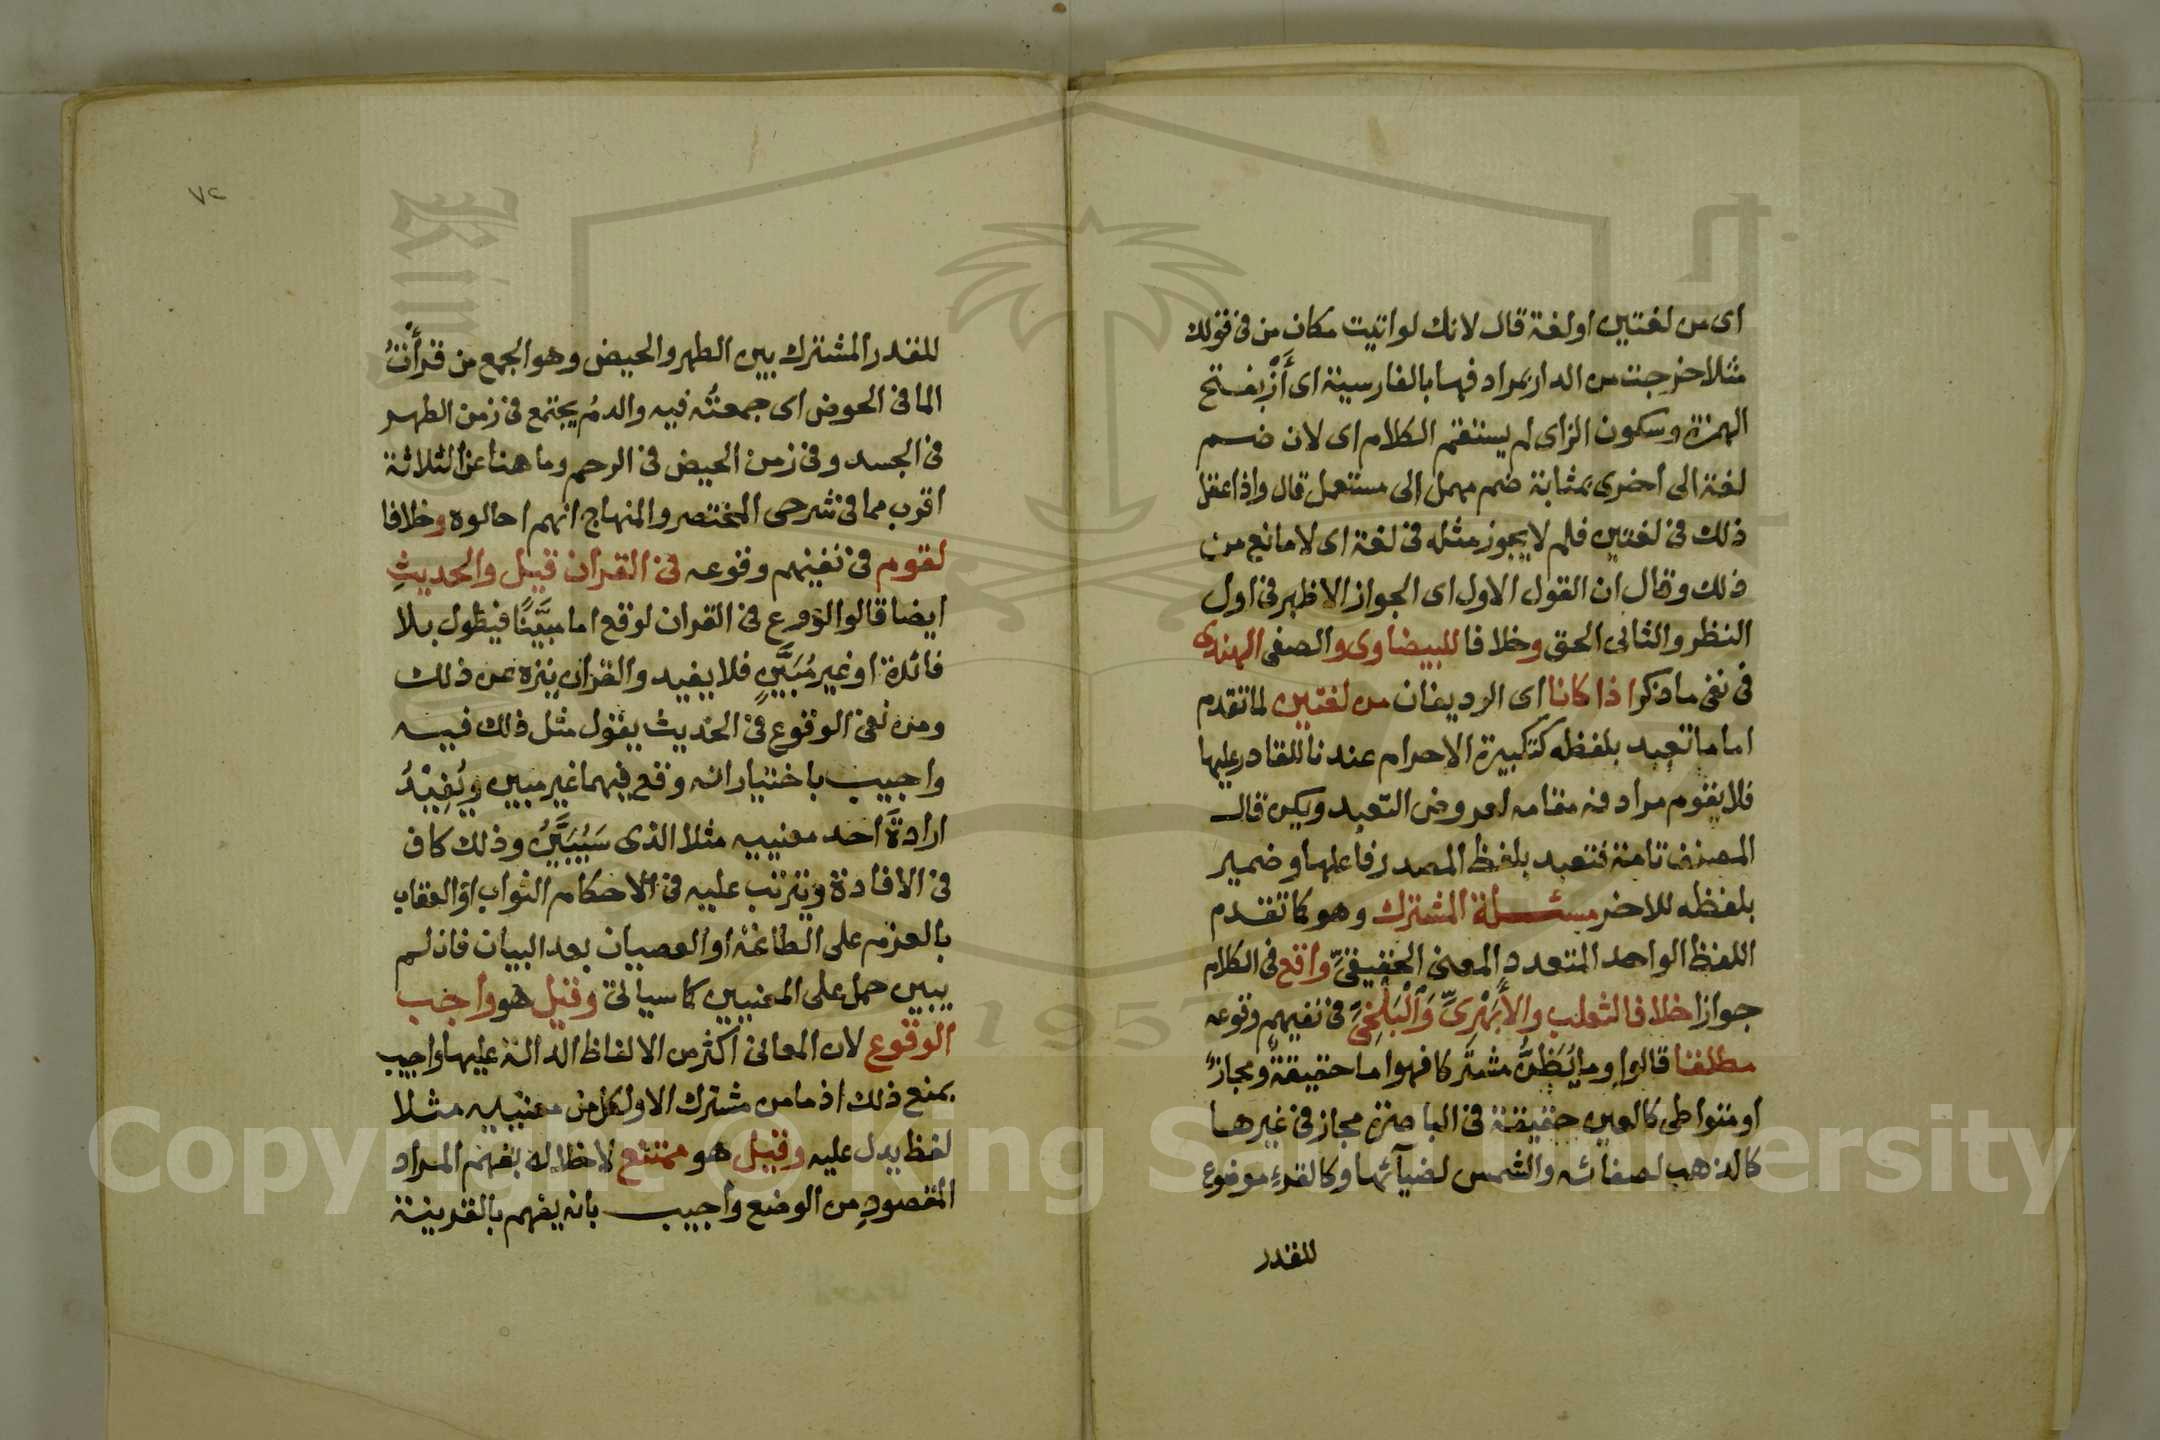 اى من لغتين او لغة قال لانك لو اتيت مكان من فى قولك
مثلا خرجت من الدار بمرادفها بالفارسية اى أَزْ بفتح
الهمزة وسكون الزاى لم يستقم الكلام اى لان ضم
لغة الى اخرى بمثابة ضم مهمل الى مستعمل قال واذا عقل
ذلك فى لغتين فلم لا يجوز مثله فى لغة اى لا مانع من
ذلك وقال ان القول الاول اى الجواز الاظهر فى اول
النظر والثانى الحق وخلافا للبيضاوى والصفى الهندى
فى نفى ما ذكر اذا كانا اى الرديفان من لغتين لما تقدم
اما ما تعبد بلفظه كتكبيرة الاحرام عندنا للقادر عليها
فلا يقوم مرادفه مقامه لعروض التعبد ويكن قال
المصنف تامة فتعبد بلفظ المصدر فاعلها وضمير
بلفظه للاخر مسئلة المشترك وهو كما تقدم
اللفظ الواحد المتعدد المعنى الحقيقىّ واقع فى الكلام
جوازا خلافا لثعلب والأَبْهَرِىِّ وَالْبَلْخِىِّ فى نفيهم وقوعه
مطلقا قالوا وما يُظَنُّ مشتَركا فهو اما حقيقةٌ ومجازٌ
او متواطى كالعين حقيقة فى الباصرة مجاز فى غيرها
كالذهب لصفائه والشمس لضيآئها وكالقرء موضوع
للقدر
٧٤
للقدر المشترك بين الطهر والحيض وهو الجمع من قرأْتُ
الما فى الحوض اى جمعتُه فيه والدمُ يجتمع فى زمن الطهر
فى الجسد وفى زمن الحيض فى الرحم وما هنا عن الثلاثة
اقرب مما فى شرحى المختصر والمنهاج انهم احالوه وخلافا
لقوم فى نفيهم وقوعه فى القران قيل والحديثِ
ايضا قالوا لو وقع فى القران لوقع اما مبَيَّنًا فيطول بلا
فائدة او غير مُبَيَّنٍ فلا يفيد والقران ينزه عن ذلك
ومن نفى الوقوع فى الحديث يقول مثل ذلك فيه
واجيب باختيار انه وقع فيهما غير مبين ويُفِيْدُ
ارادةَ احد معنييه مثلا الذى سَيُبَيَّنُ وذلك كاف
فى الافادة ويترتب عليه فى الاحكام الثواب او العقاب
بالعزم على الطاعة او العصيان بعد البيان فان لم
يبين حمل على المعنيين كما سياتى وقيل هو واجب
الوقوع لان المعانى اكثر من الالفاظ الدالة عليها واجيب
بمنع ذلك اذ ما من مشترك الا ولكل من معنييه مثلا
لفظ يدل عليه وقيل هو ممتنع لاخلاله بفهم المراد
المقصودِ من الوضع واجيب بانه يفهم بالقرينة